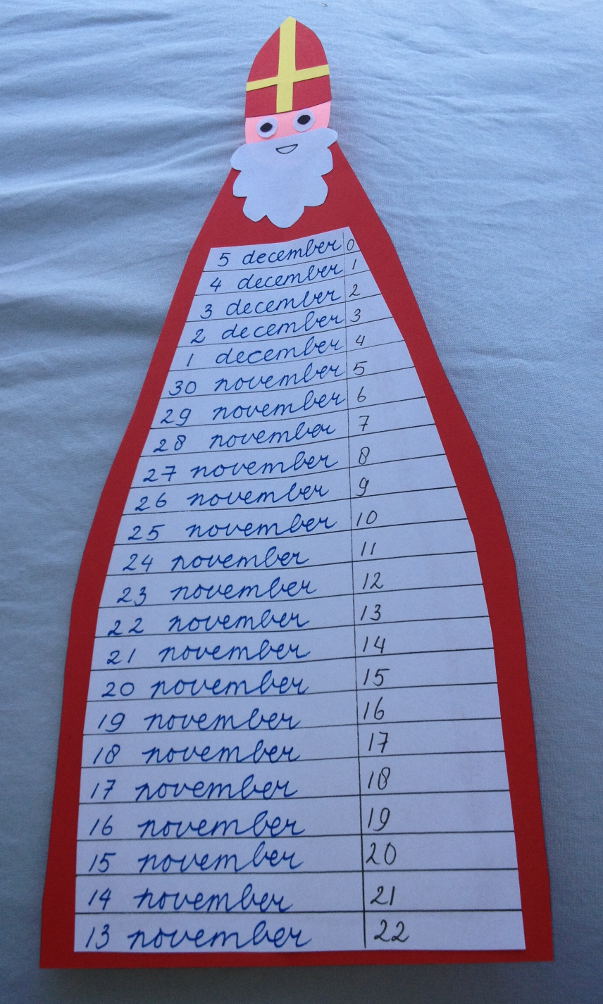 5 december 0
4 december 1
3 december 2
2 december 3
1 december 4
30 november 5
29 november 6
28 november 7
27 november 8
26 november 9
25 november 10
24 november 11
23 november 12
22 november 13
21 november 14
20 november 15
19 november 16
18 november 17
17 november 18
16 november 19
15 november 20
14 november 21
13 november 22